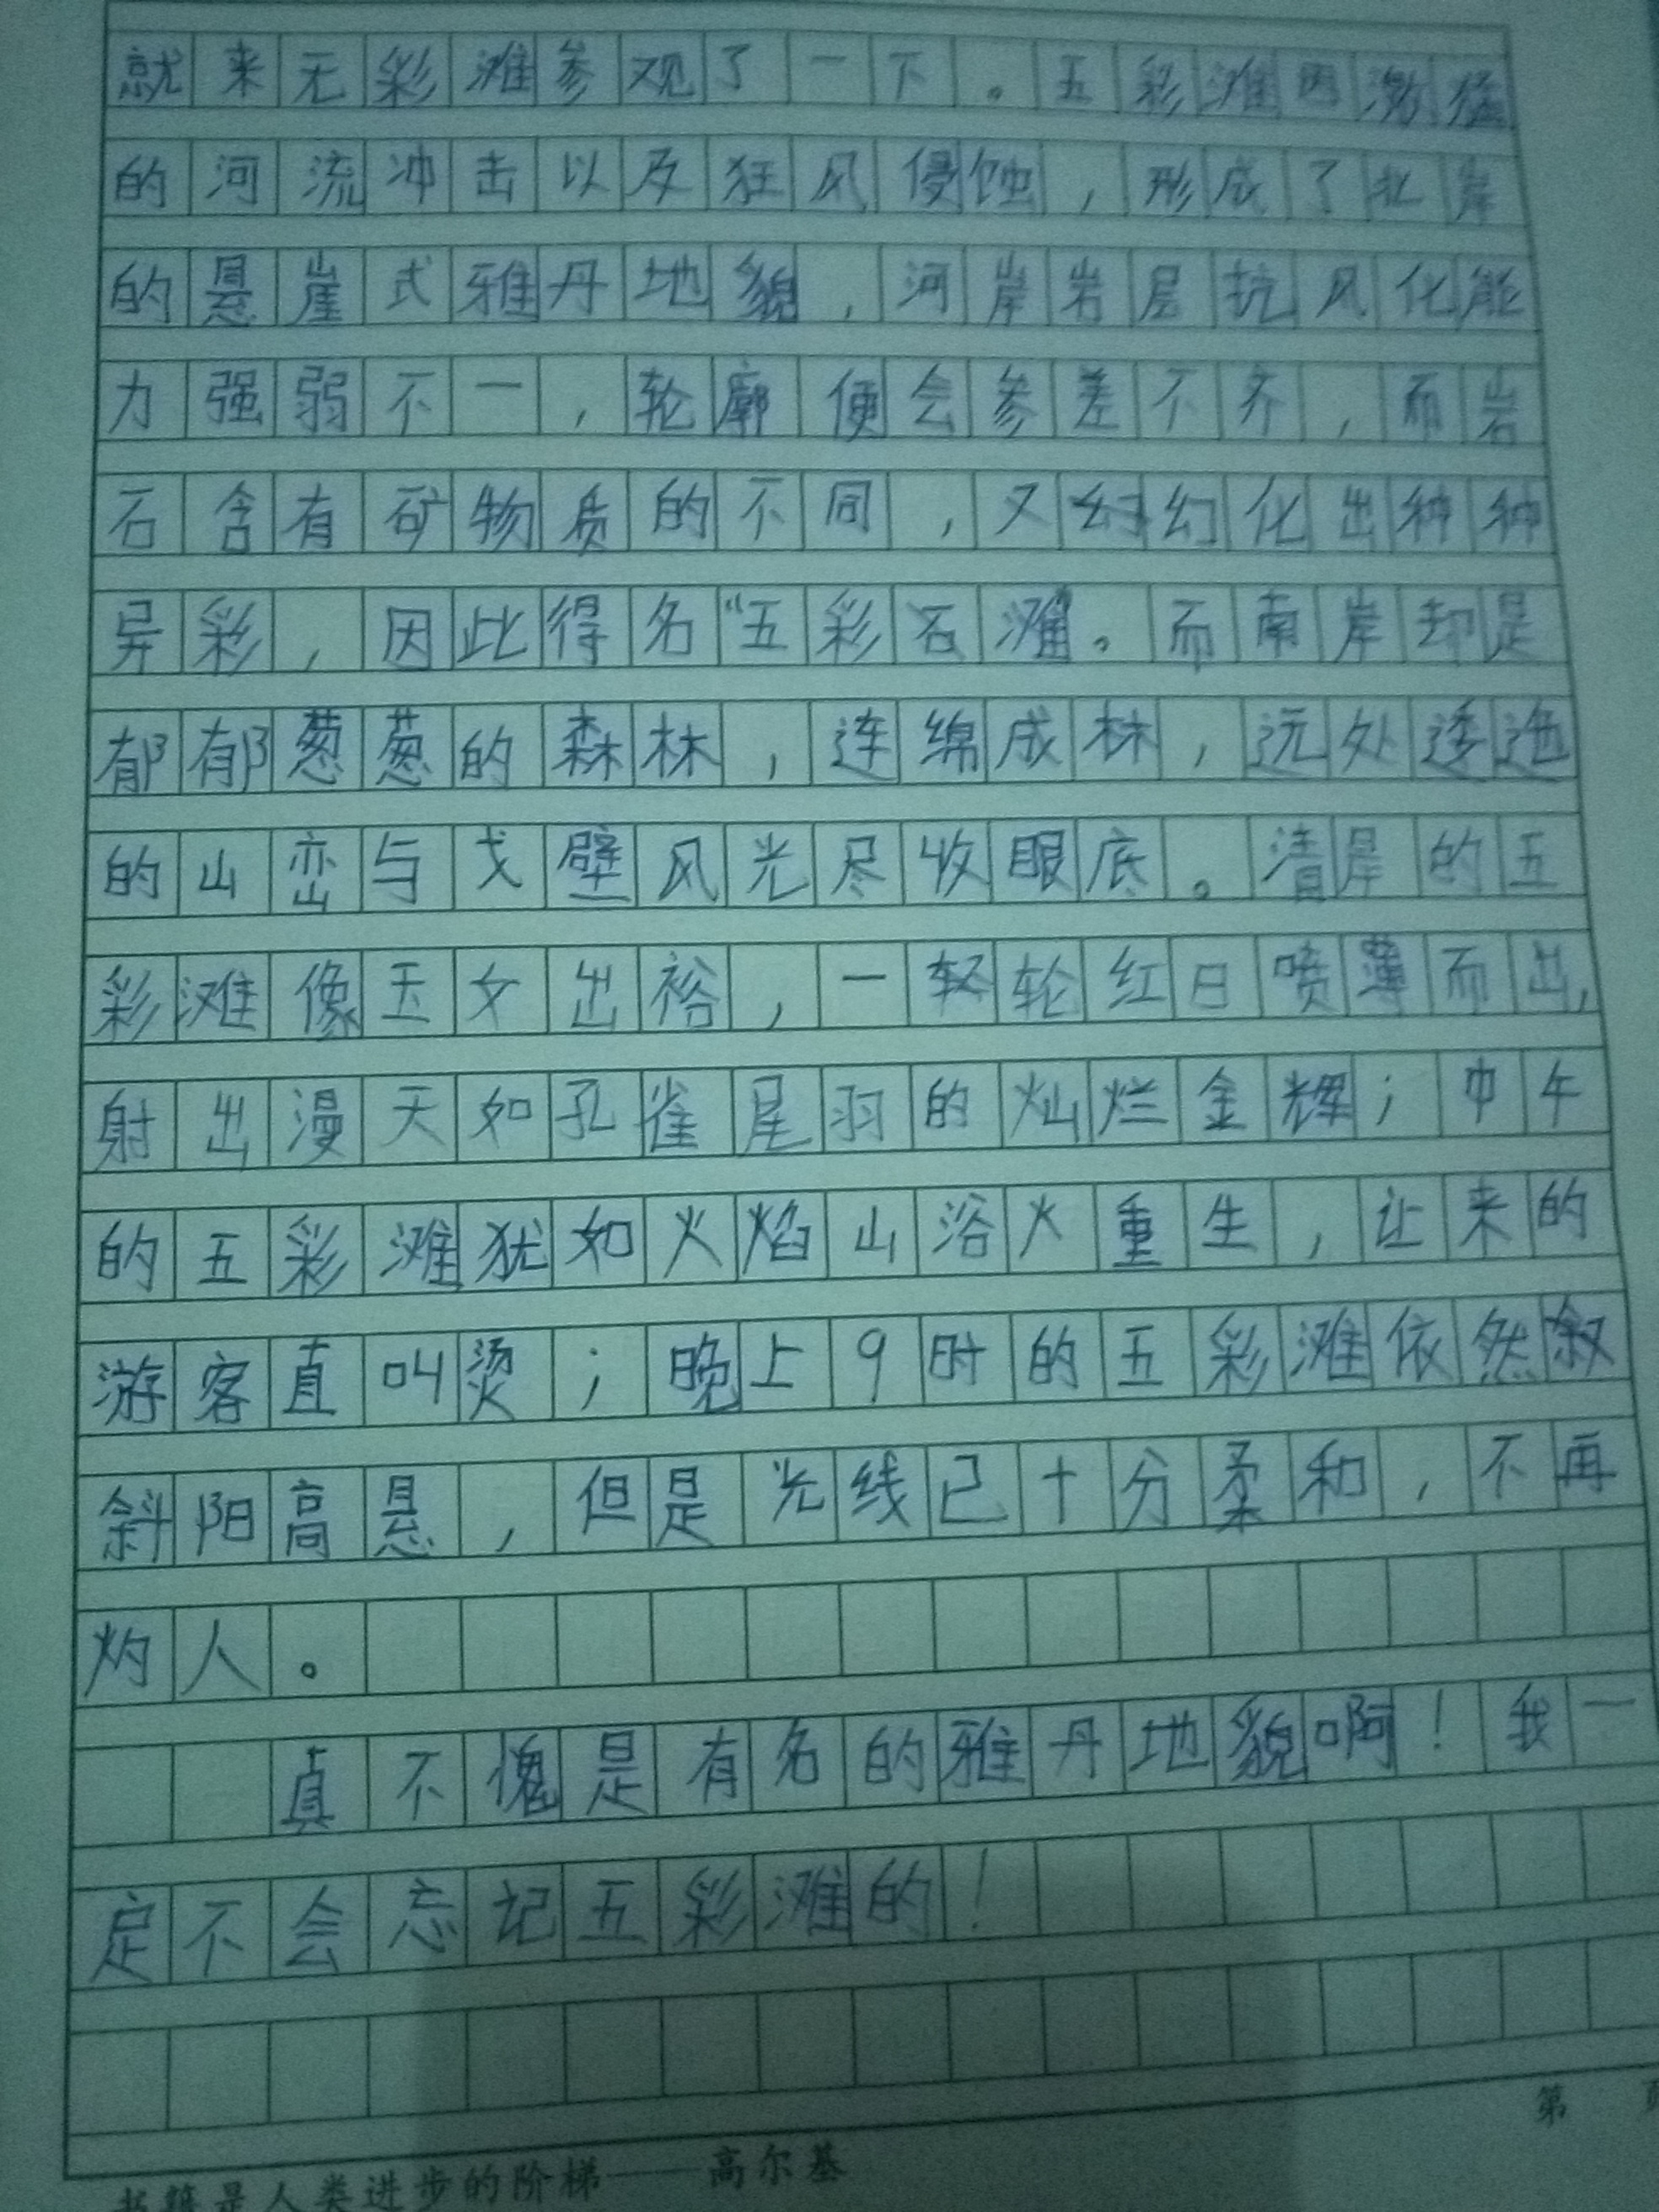 就来无彩滩参观了一下。五彩滩因激猛
的河流冲击以及狂风侵蚀，形成了北岸
的悬崖式雅丹地貌，河岸岩层抗风化能
力强弱不一，轮廓便会参差不齐，而岩
石含有矿物质的不同，又幻幻化出种种
异彩，因此得名“五彩石滩”。而南岸却是
郁郁葱葱的森林，连绵成林，远处逶迤
的山峦与戈壁风光尽收眼底。清岸的五
彩滩像玉女出裕，一轻轮红日喷薄而出，
射出漫天如孔雀尾羽的灿烂金辉；中午
的五彩滩犹如火焰山浴火重生，让来的
游客直叫烫；晚上9时的五彩滩依然叙
斜阳高悬，但是光线已十分柔和，不再
灼人。
真不愧是有名的雅丹地貌啊！我一
定不会忘记五彩滩的！
第 页
书籍是人类进步的阶梯——高尔基